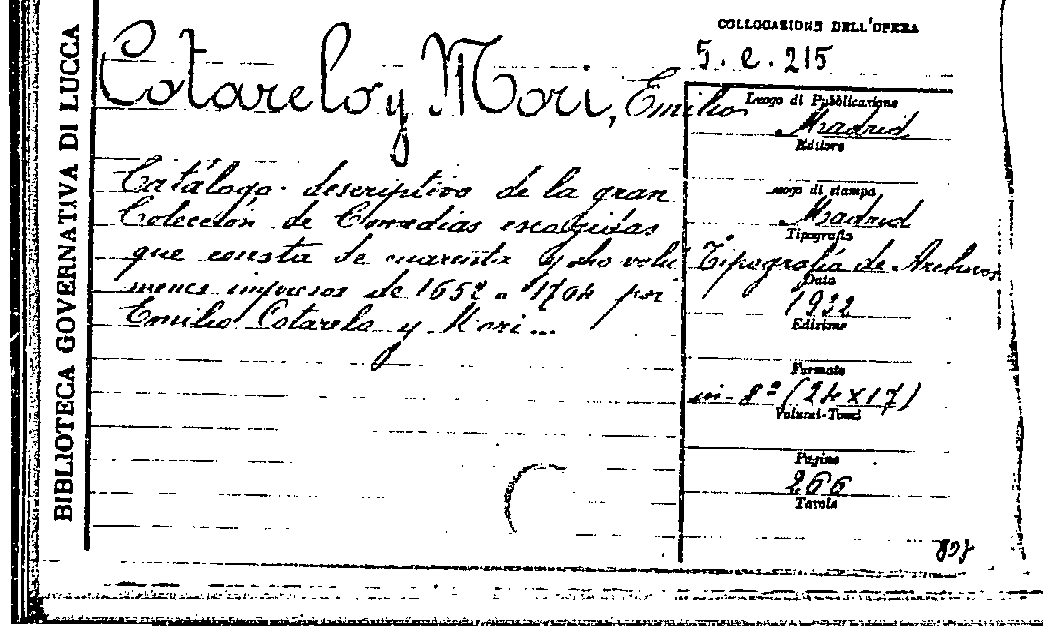 BIBLIOTECA GOVERNATIVA DI LUCCA
COLLOCAZIONE DELL'OPERA
5. e. 215
Cotarelo y Mori, Emilio
Catálogo descriptivo de la gran
Colección de Comedias escogidas
que consta de cuarenta y ocho volú
menes impresos de 1652 a 1704 por
Emilio Cotarelo y Mori...
Luogo di Pubblicazione
Madrid
Editore
Luogo di stampa
Madrid
Tipografia
Tipografía de Archivos
Data
1932
Edizione
Formato
in-8º (24x17)
Volumi-Tomi
Pagine
266
Tavole